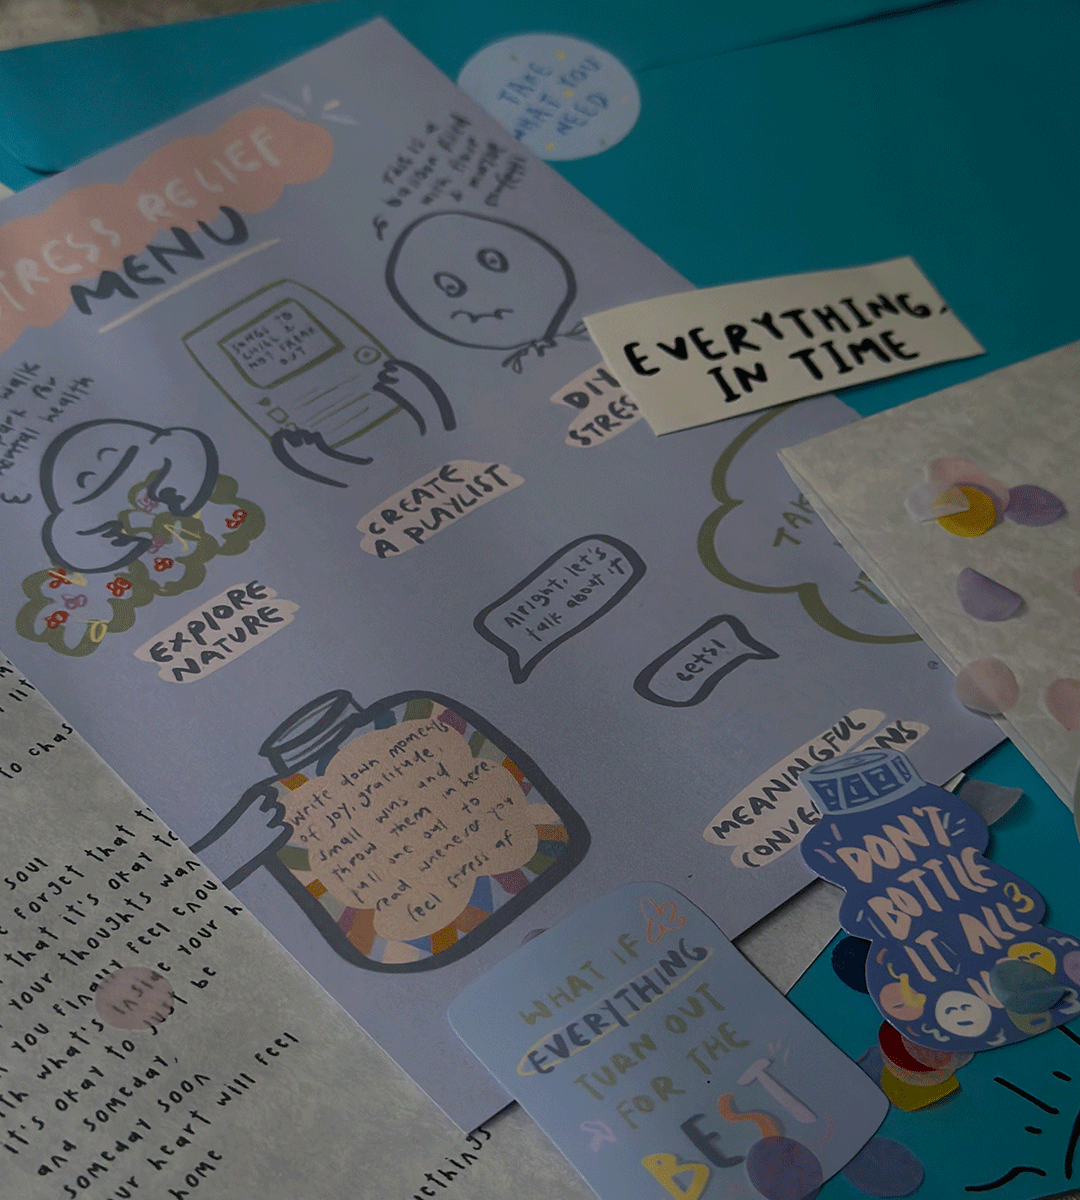 TAKE
WHAT YOU
NEED
STRESS RELIEF
MENU
THIS IS A
balloon filled
with flour
SONGS TO
CHILL &
NOT FREAK
OUT
EVERYTHING,
IN TIME
walk
park for
mental health
DIY
STRES
CREATE
A PLAYLIST
TAK
EXPLORE
NATURE
Alright, let's
talk about it
Lets!
MEANINGFUL
write down moments
of joy, gratitude,
small wins and
throw them in here.
pull one out to
read whenever you
feel stressed af
DON'T
BOTTLE
IT ALL
WHAT IF
EVERYTHING
TURN OUT
FOR THE
BEST
to chas
soul
forget that
that it's okay to
your thoughts wan
you finally feel enou
with what's inside your h
it's okay to just be
and someday,
someday soon
your heart will feel
home